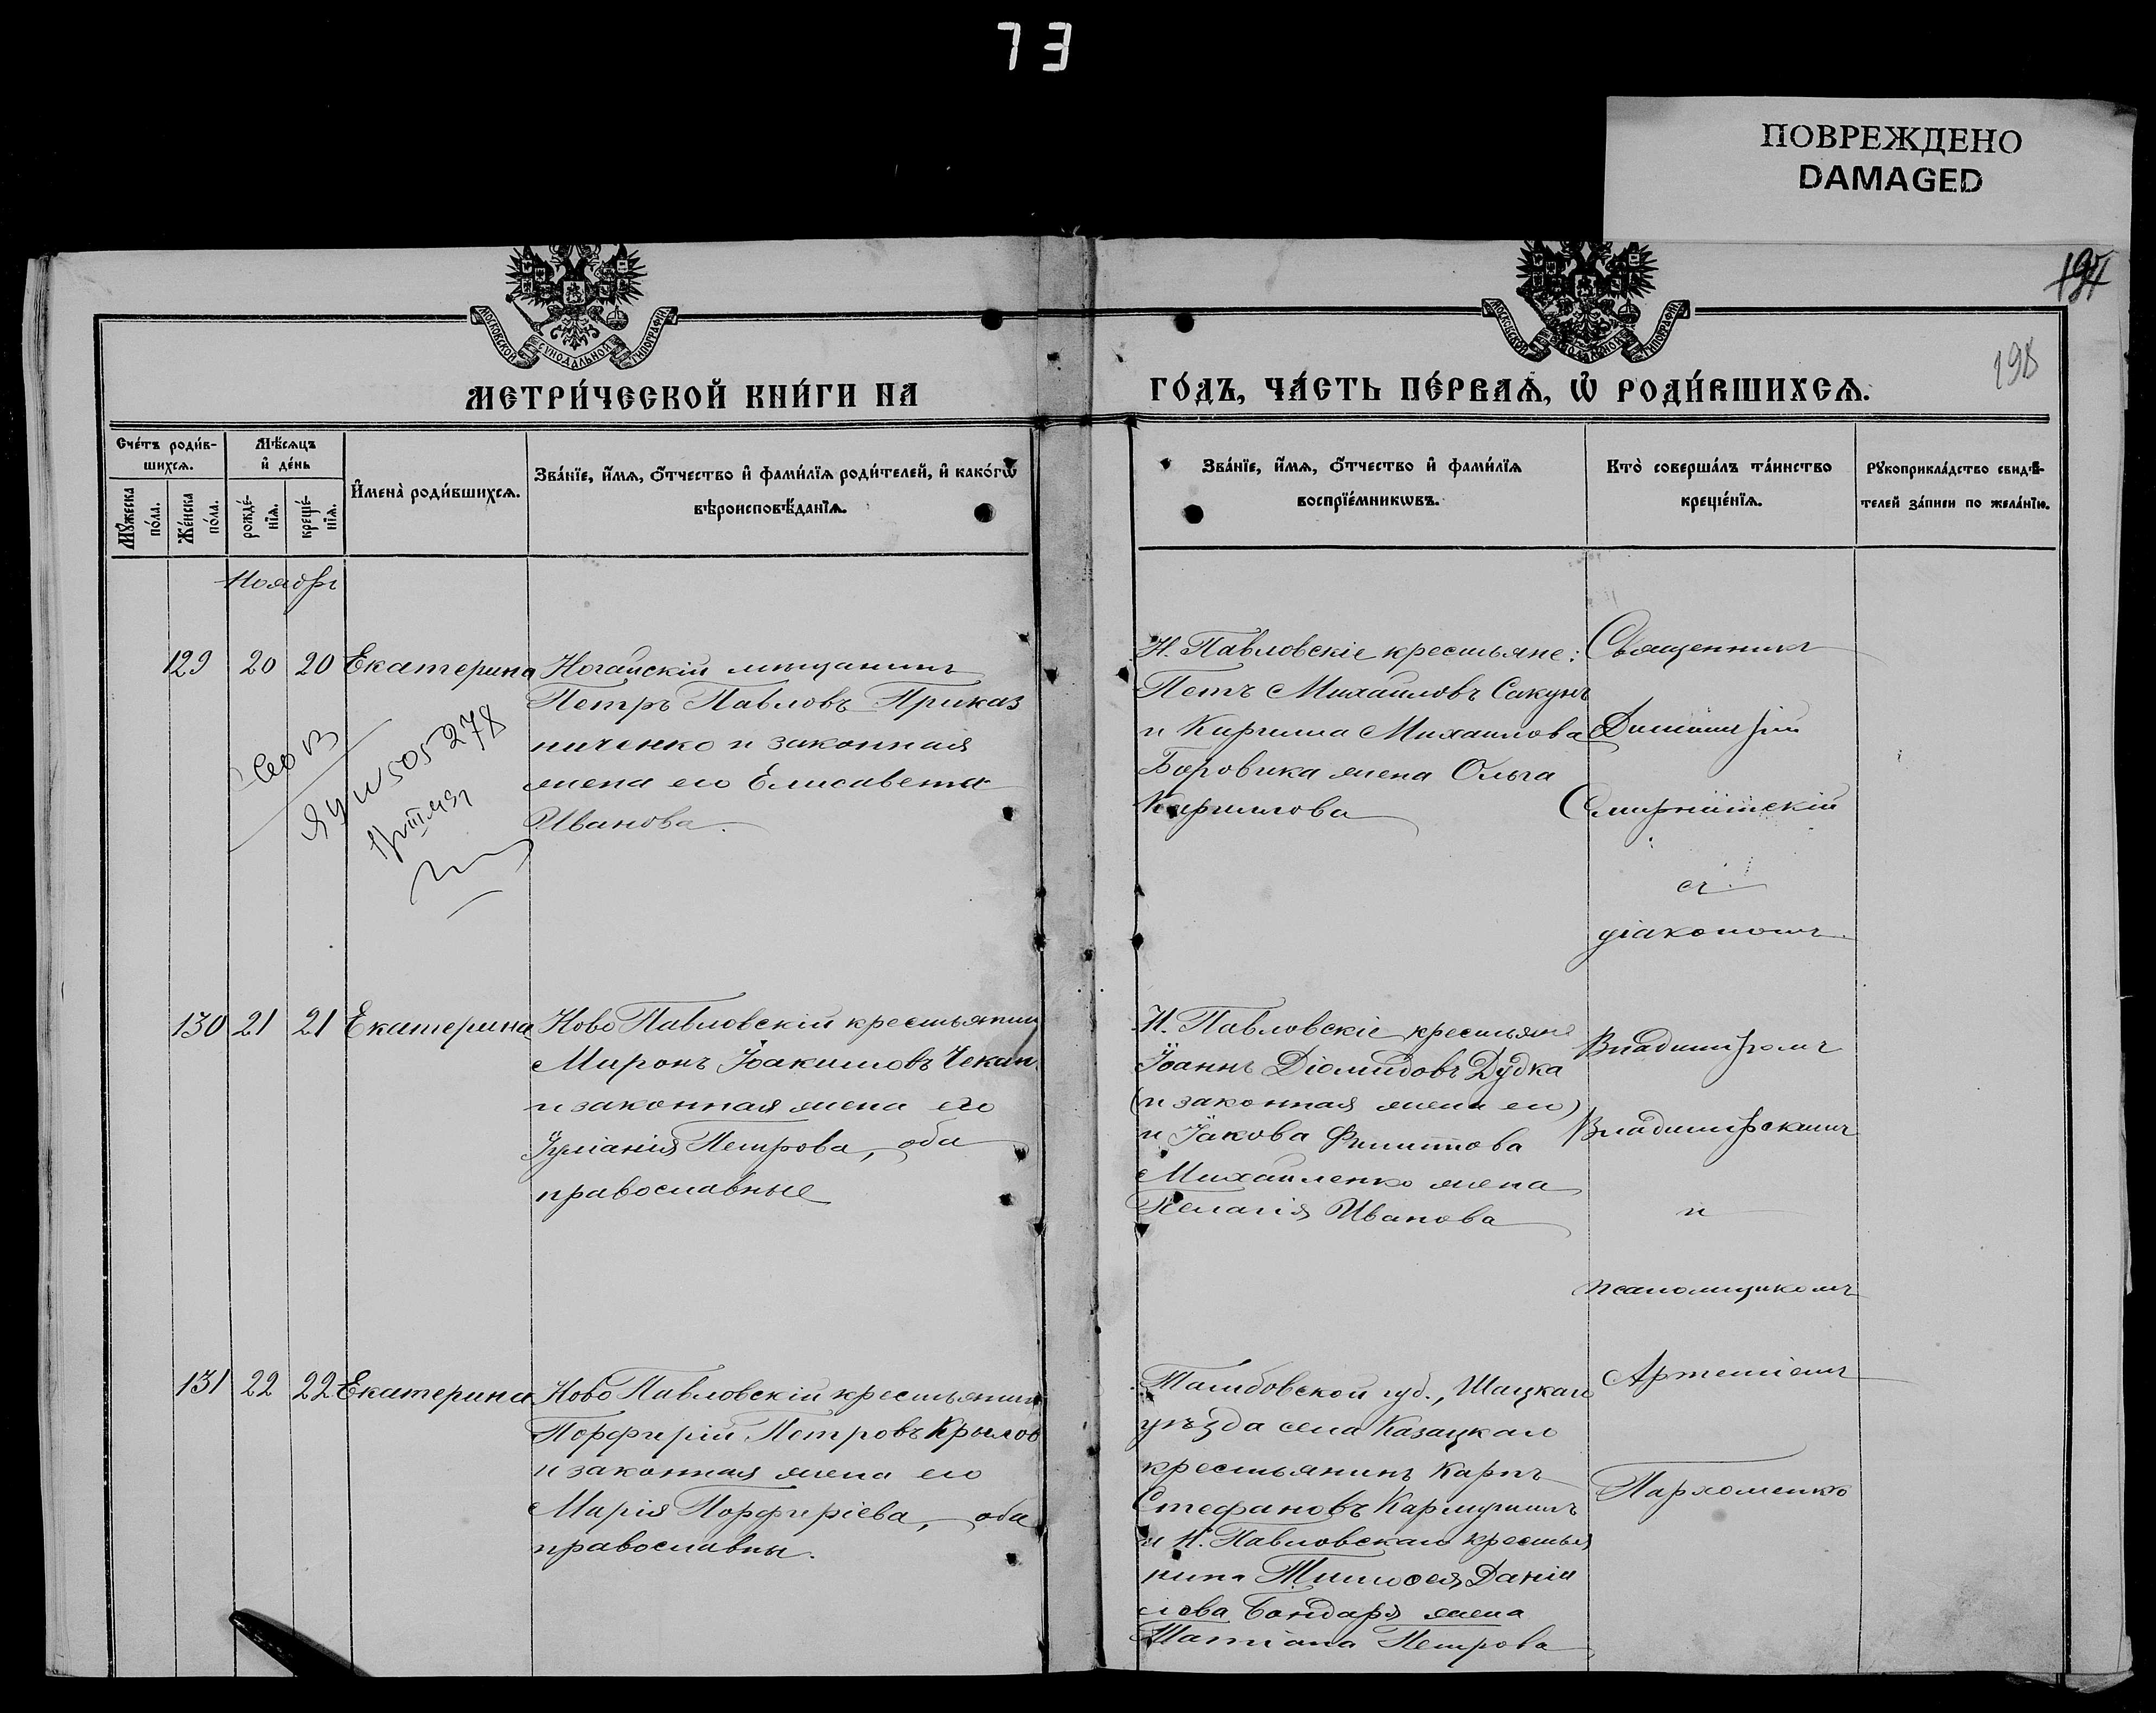 73
ПОВРЕЖДЕНО
DAMAGED
198
МОСКОВСКОЙ СѴНОДАЛЬНОЙ ТИПОГРАФІИ
МОСКОВСКОЙ СѴНОДАЛЬНОЙ ТИПОГРАФІИ
МЕТРИ́ЧЕСКОЙ КНИ́ГИ НА
ГО́ДЪ, ЧА́СТЬ ПЕ́РВАѦ, Ѡ҆ РОДИ́ВШИХСѦ.
Сче́тъ роди́в-
шихсѧ.
Мꙋ́жеска
по́ла.
Же́нска
по́ла.
Мѣ́сѧцъ
и҆ де́нь
рожде́-
нїѧ.
креще́-
нїѧ.
И҆мена̀ роди́вшихсѧ.
Зва́нїе, и҆́мѧ, ѻ҆́тчество и҆ фами́лїѧ роди́телей, и҆ како́гѡ
вѣроисповѣ́данїѧ.
Зва́нїе, и҆́мѧ, ѻ҆́тчество и҆ фами́лїѧ
воспрїе́мникωвъ.
Кто̀ соверша́лъ та́инство
креще́нїѧ.
Рꙋкоприкла́дство свидѣ́-
телей за́писи по жела́нїю.
Ноябрь
129 20 20 Екатерина
Ногайскій мѣщанинъ
Петръ Павловъ Приказ
ниченко и законная
жена его Елисавета
Иванова.
Н. Павловскіе крестьяне:
Петръ Михаиловъ Сакунъ
и Кирилла Михаилова
Боровика жена Ольга
Кириллова
Священникъ
Димитрій
съ
діакономъ
505278
130 21 21 Екатерина
Ново Павловскій крестьянинъ
Миронъ Іоакимовъ Чекан
и законная жена его
Іуліанія Петрова, оба
православные
Н. Павловскіе крестьяне
Іоаннъ Діомидовъ Дудка
(и законная жена его)
и Іакова Филиппова
Михаиленко жена
Пелагія Иванова
Владиміромъ
Владимірскимъ
и
псаломщикомъ
131 22 22 Екатерина
Ново Павловскій крестьянинъ
Порфирій Петровъ Крылов
и законная жена его
Марія Порфиріева, оба
православны.
Тамбовской губ., Шацкаго
уѣзда села Казацкаго
крестьянинъ Карпъ
Стефановъ
и Н. Павловскаго крестья
нина Тимофея Даніи
лова Бондаря жена
Татіана Петрова
Артеміемъ
Пархоменко